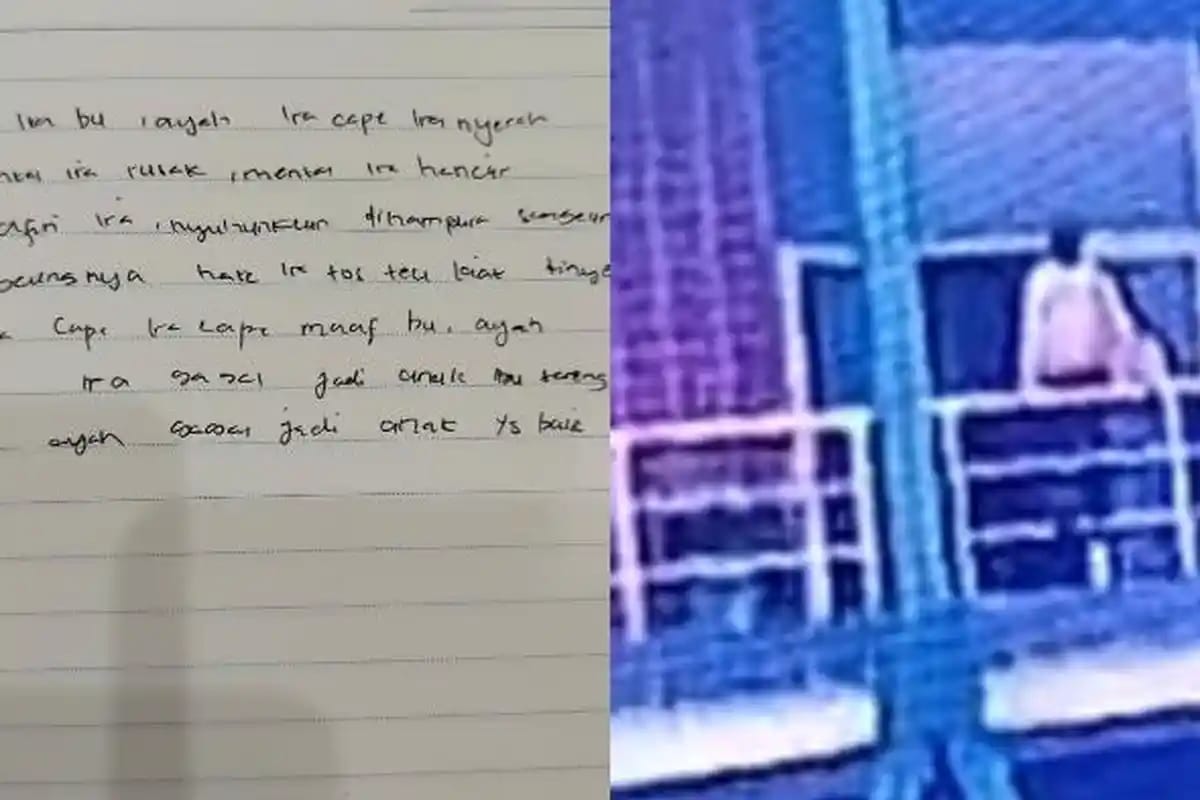 Ira bu, ayah Ira cape Ira nyerah
ira rusak, mental Ira hancur
Ira, nyuhunkeun dihampura
hate Ira tos teu kiat
Cape Ira cape maaf bu, ayah
Ira gagal jadi anak ibu sareng
ayah gagal jadi anak yg baik